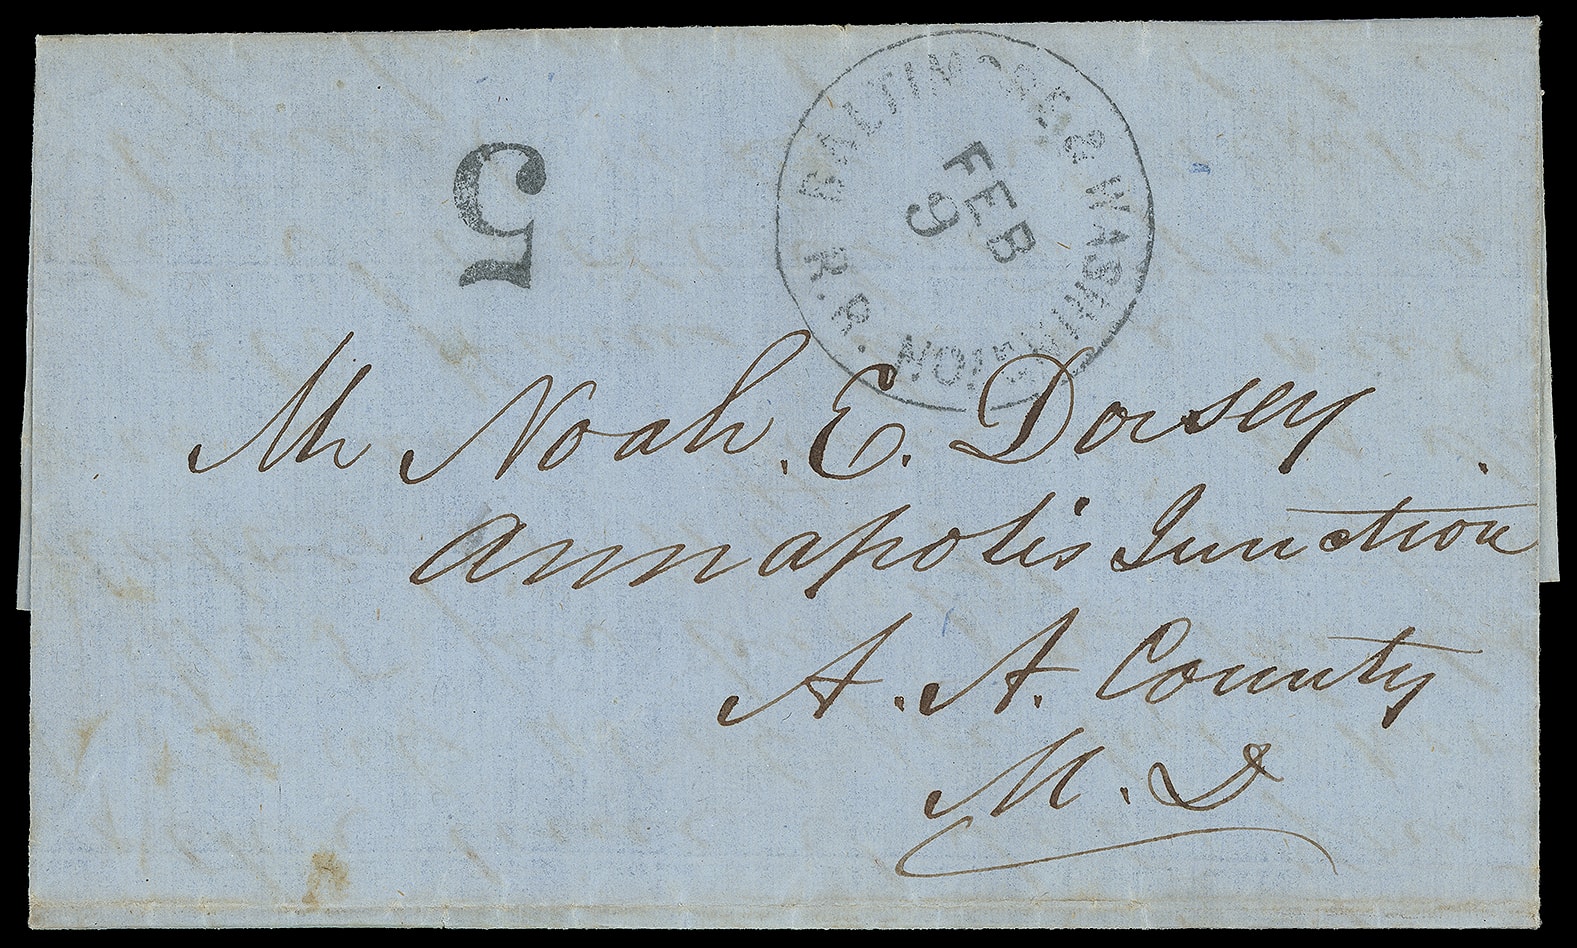 5
BALTIMORE & WASHINGTON R.R.
FEB
9
Mr Noah. E. Dorsey.
Annapolis Junction
A. A. County
M. D